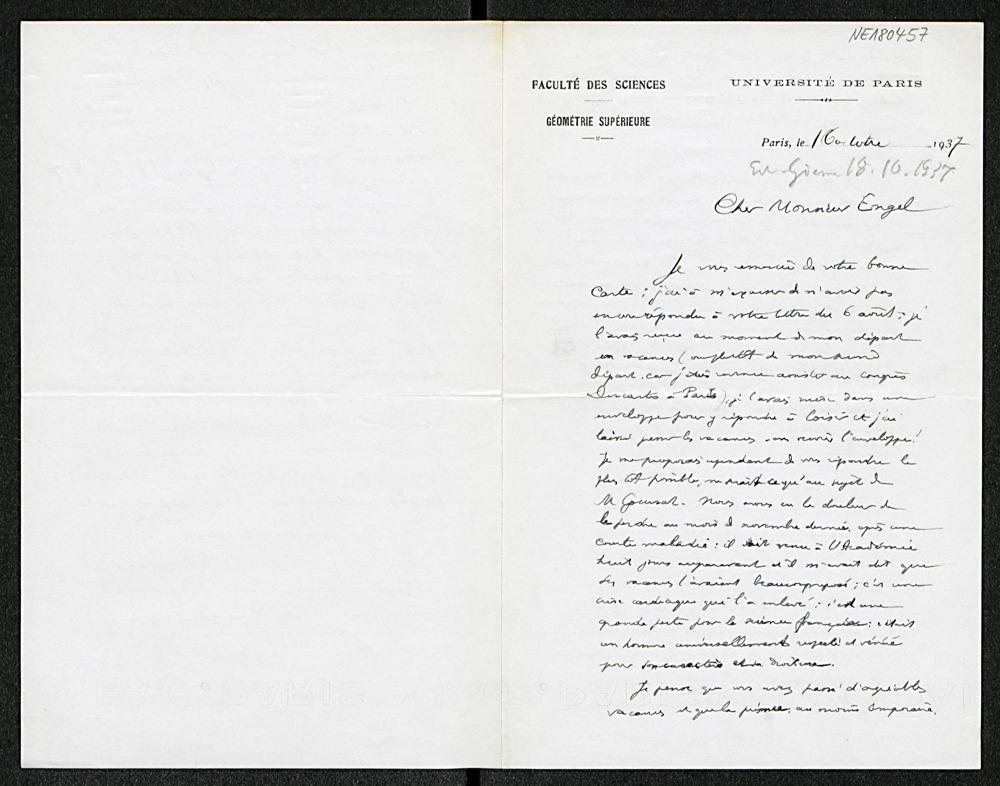 NE180457
FACULTÉ DES SCIENCES
UNIVERSITÉ DE PARIS
GÉOMÉTRIE SUPÉRIEURE
Paris, le Octobre 1937
18.10.1937
Cher Monsieur Engel
Je vous remercie de votre bonne
carte ; j'ai à m'excuser de n'avoir pas
encore répondu à votre lettre du 6 août ; je
l'avais reçue au moment de mon départ
en vacances (ou plutôt de mon second
départ, car j'étais revenu assister au congrès
Descartes à Paris), je l'avais mise dans une
enveloppe pour y répondre à loisir et j'ai
laissé passer les vacances sans rouvrir l'enveloppe !
Je me proposais cependant de vous répondre le
plus tôt possible, ne serait-ce qu'au sujet de
M Goursat. Nous avons eu la douleur de
le perdre au mois de novembre dernier, après une
courte maladie : il était venu à l'Académie
huit jours auparavant et il m'avait dit que
ses vacances l'avaient beaucoup reposé ; c'est une
crise cardiaque qui l'a enlevé ; c'est une
grande perte pour la science française ; c'était
un homme universellement respecté et vénéré
pour son caractère et sa droiture.
Je pense que vous avez passé d'agréables
vacances et que la au moins temporaire,